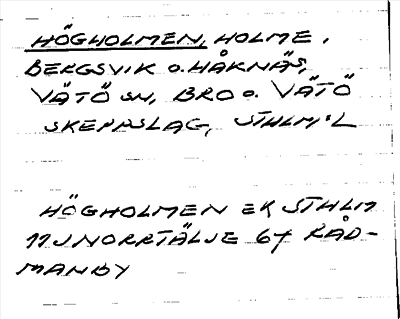 HÖGHOLMEN, HOLME,
BERGSVIK o. HÅKNÄS,
VÄTÖ SN, BRO o. VÄTÖ
SKEPPSLAG, STHLM:S L
HÖGHOLMEN EK STHLM
11J NORRTÄLJE 67 RÅD-
MANBY